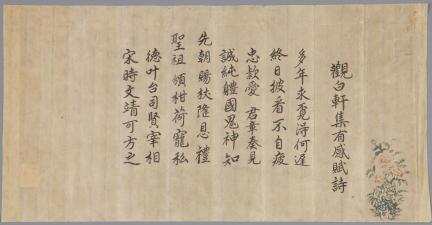 觀白軒集有感賦詩
多年求覓得何遲
終日披看不自疲
忠款愛 君章奏見
誠純體國鬼神知
先朝賜秩隆恩禮
聖祖頒柑荷寵私
德叶台司賢宰相
宋時文靖可方之